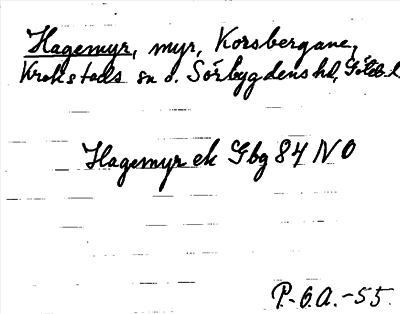 Hagemyr, myr, Korsbergane,
Krokstads sn o. Sörbygdens hd, Göteb. l.
Hagemyr ek Gbg 84 NO
P.-O.A.-55.